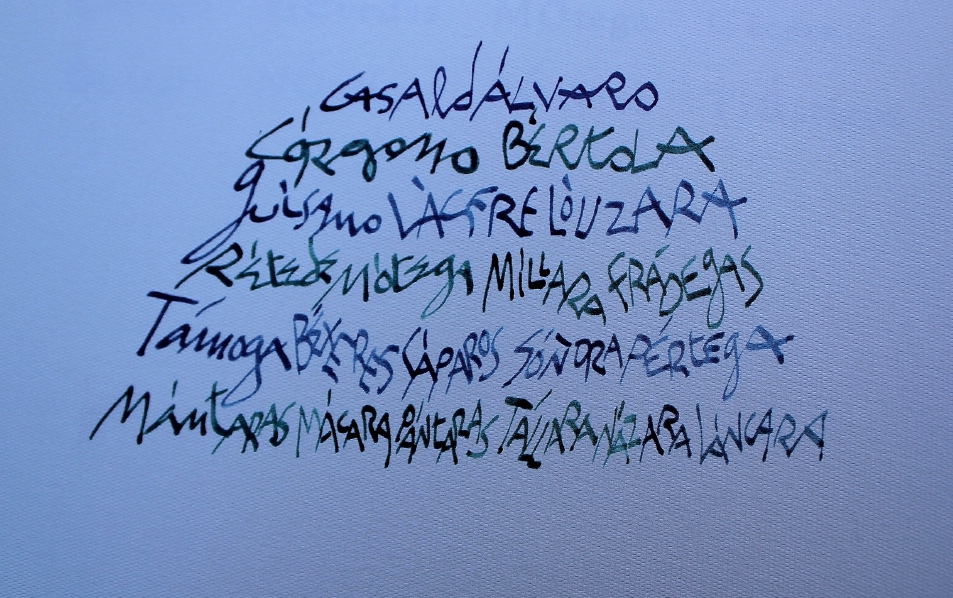 CasaldÁlvaro
Córgomo BÉRtoLA
Guísamo LÀSTRELÒUZARA
Rétede Mótega MILLARA FRÁDEGAS
Támoga BÉXERES CÁPAROS SÓÑORA PÉRTEGA
MántARAS MÁCARA PÁNtARAS TÁLLARA NÁZARA LÁNCARA